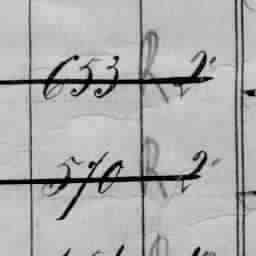 653 R 2
570 R 2